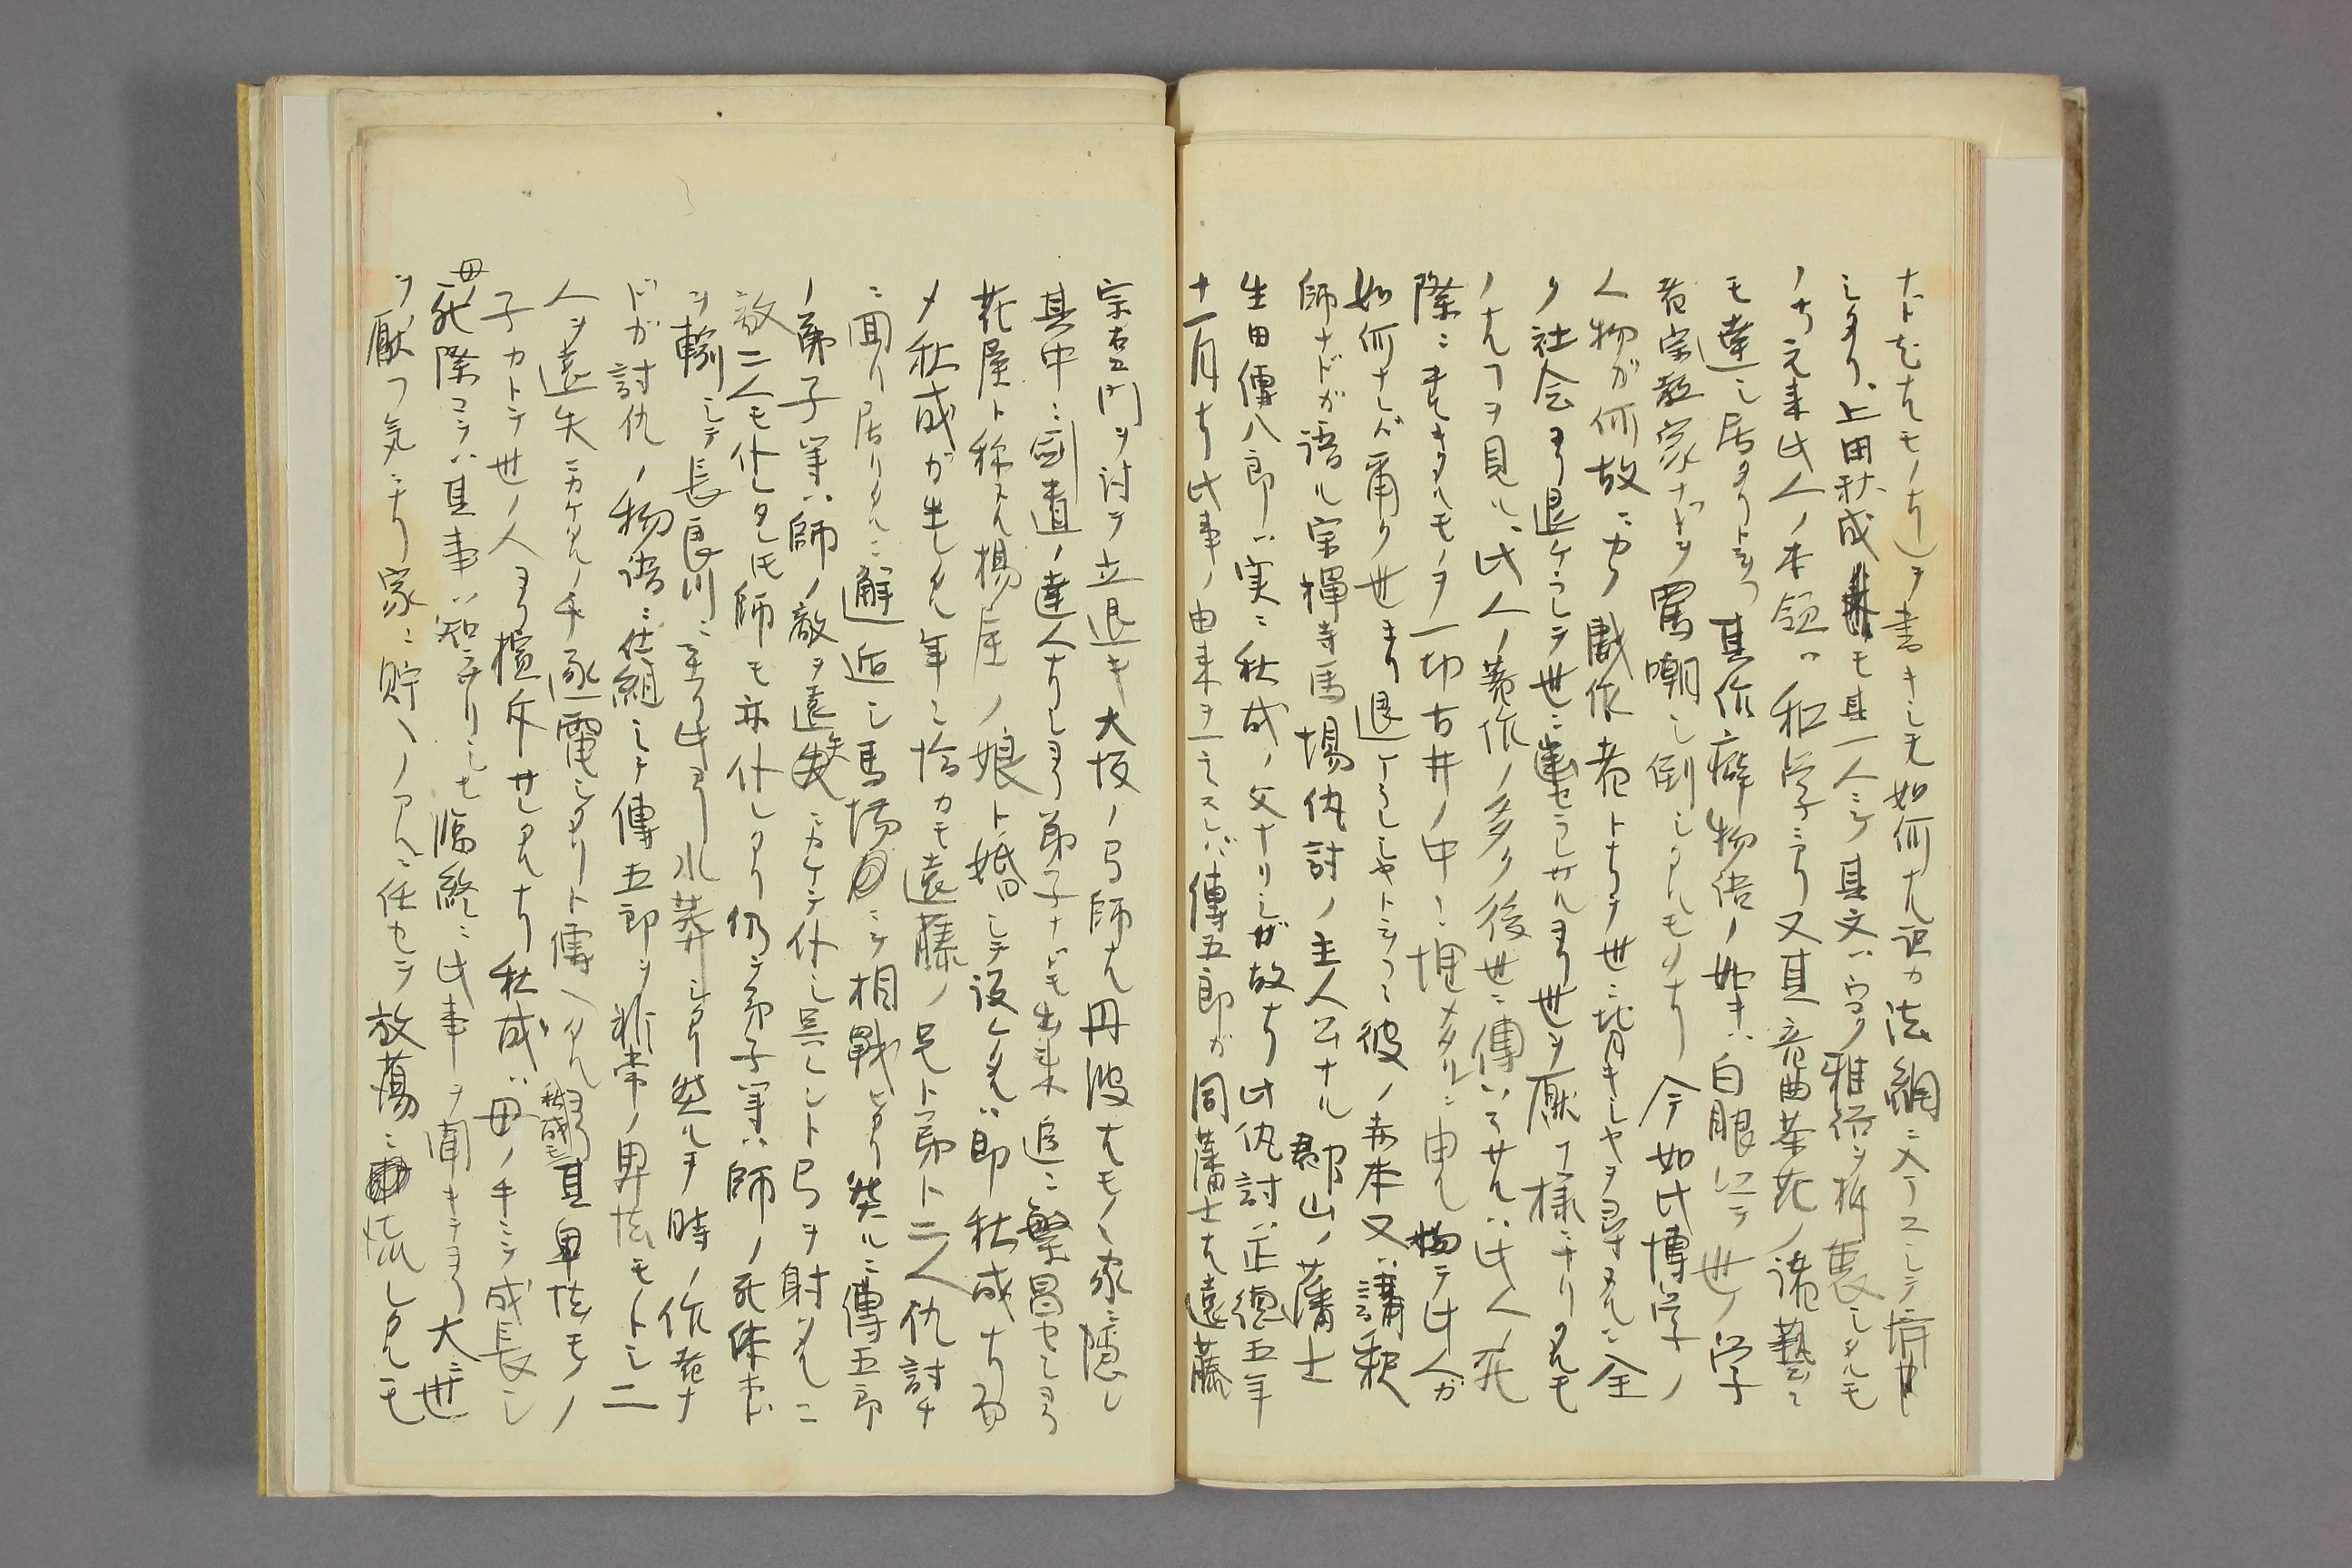 ナドナルモノナリ)ヲ書キシモ如何ナル訳カ法網ニ入
シタリ、上田秋成モ其一人ニシテ其文ハウマク雅俗ヲ折衷シタルモ
ノナリ元来此人ノ本領ハ和学ニアリ又其音曲茶花ノ諸藝ニ
モ達シ居タリト云フ其作癖物語ノ如キハ白眼ニテ世ノ学
者宗教家ナドヲ罵嘲シ倒シタルモノナリ今如此博学ノ
人物ガ何故ニカク戯作者トナリテ世ニ背キシヤヲ尋ヌルニ全
ク社会ヨリ退ケラレテ世ニセラレザルヨリ世ヲ厭フ様ニナリタルモ
ノナルヿヲ見ル、此人ノ著作ノ多ク後世ニ傳ハラザルハ此人ノ死
際ニ書キタルモノヲ一切古井ノ中ニ埋メタルニ由ル扨テ此人ガ
如何ナレバ爾ク世ヨリ退ケラレシヤト云フニ彼ノ赤本又ハ講釈
師ナドガ語ル宗禅寺馬場仇討ノ主人公ナル郡山ノ藩士
生田傳八郎ハ実ニ秋成ノ父ナリシガ故ナリ此仇討ハ正徳五年
十一月ナリ此事ノ由来ヲ云ヘバ傳五郎ガ同藩士ナル遠藤
宗左エ門ヲ討テ立退キ大坂ノ弓師ナル丹波ナルモノヽ家ニ隠レ
其中ニ剣道ノ達人ナルヨリ弟子ナドモ出来追ニ繁昌セシヨリ
花屋ト称スル楊屋ノ娘ト婚シテ設ケタルハ即秋成ナリ初
メ秋成ガ生レタル年ニ恰カモ遠藤ノ兄ト弟ト二人仇討チ
ニ回リ居リタルニ邂逅シ馬場ニテ相戦ヒタリ然ルニ傳五郎
ノ弟子等ハ師ノ敵ヲ遠矢ニカケテ仆シ呉レント弓ヲ射タルニ
敵二人モ仆レタレ𪜈師モ亦仆レタリ仍テ弟子等ハ師ノ死体ナド
ヲ輌シテ長良川ニ至リ此ヨリ水葬シタリ然ルヲ時ノ作者ナ
ドガ討仇ノ物語ニ仕組シテ傳五郎ヲ非常ノ卑怯モノトシ二
人ヲ遠矢ニカケタルノチ逐電シタリト傳ヘタルヨリ秋成モ其卑怯モノノ
子カトテ世ノ人ヨリ擯斥サレタルナリ秋成ハ母ノ手ニテ成長シ
母ノ死際マデハ其事ハ知ラザリシモ臨終ニ此事ヲ聞キテヨリ大ニ世
ヲ厭フ気ニナリ家ニ貯ヘノアルニ任セテ放蕩ニ流レタルモ